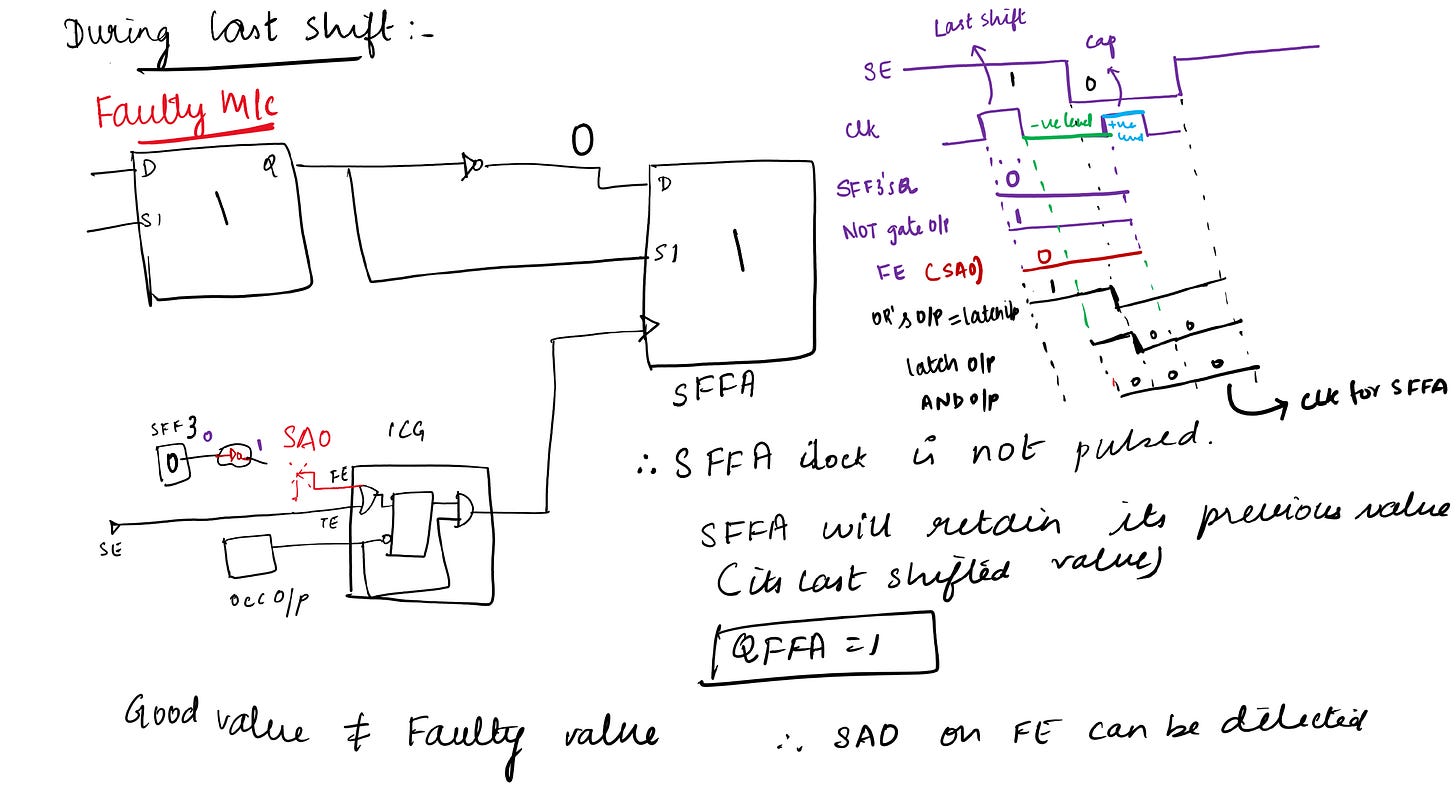 During last shift:-
Faulty M/c
D
Q
1
SI
0
D
SI
1
SFFA
SFF3
0
0
1
SA0
ICG
FE
TE
SE
OCC O/P
Last shift
Cap
SE
1
0
Clk
-ve level
+ve level
SFF3's Q
0
NOT gate O/P
1
FE (SA0)
0
OR's O/P = latch i/p
1
latch O/P
0 0
AND O/P
0 0 0
Clk for SFFA
∴ SFFA clock is not pulsed.
SFFA will retain its previous value
(its last shifted value)
QFFA = 1
Good value ≠ Faulty value
∴ SA0 on FE can be detected